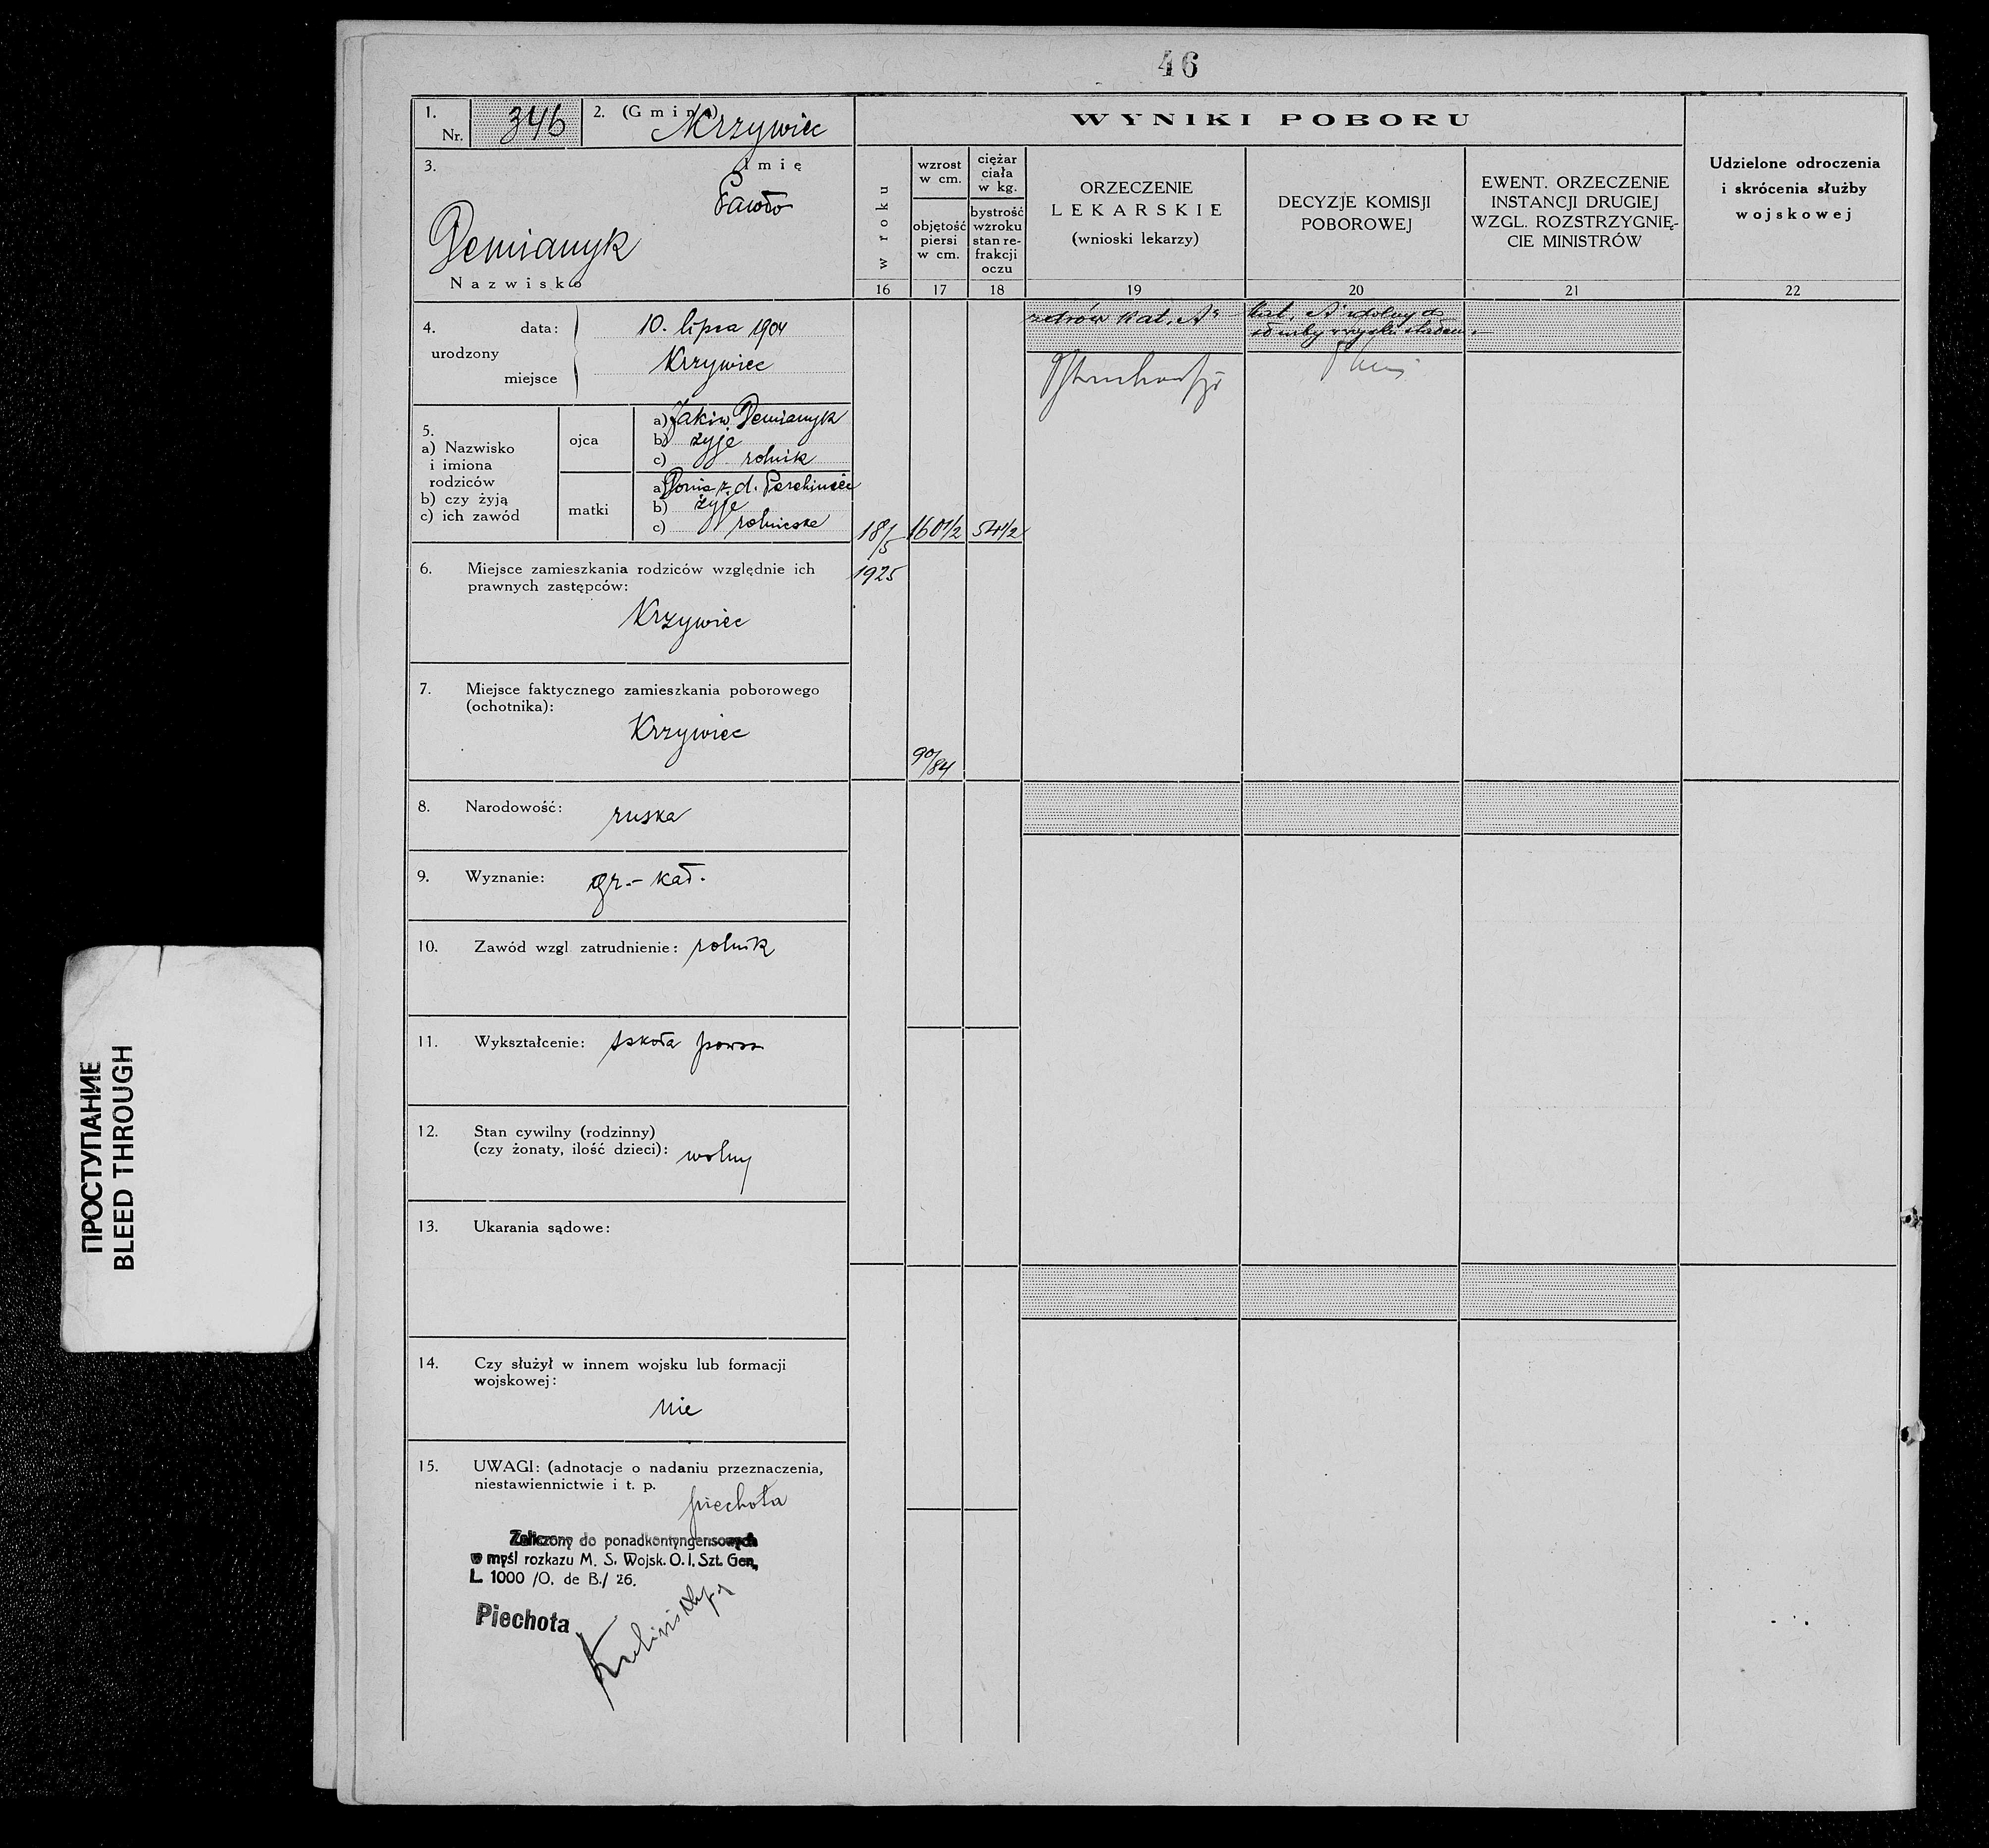 46
1.
Nr. 346
2. (Gmina) Krzywiec
3.
Imię
Pawło
Demianyk
Nazwisko
4.
urodzony
data: 10. lipca 1904
miejsce Krzywiec
5.
a) Nazwisko
i imiona
rodziców
b) czy żyją
c) ich zawód
ojca
a) Jakiw Demianyk
b) żyje
c) rolnik
matki
a) z. d.
b) żyje
c) rolniczka
6. Miejsce zamieszkania rodziców względnie ich
prawnych zastępców:
Krzywiec
7. Miejsce faktycznego zamieszkania poborowego
(ochotnika):
Krzywiec
8. Narodowość: ruska
9. Wyznanie: gr.-kat.
10. Zawód wzgl. zatrudnienie: rolnik
11. Wykształcenie: szkoła powsz
12. Stan cywilny (rodzinny)
(czy żonaty, ilość dzieci): wolny
13. Ukarania sądowe:
14. Czy służył w innem wojsku lub formacji
wojskowej:
nie
15. UWAGI: (adnotacje o nadaniu przeznaczenia,
niestawiennictwie i t. p.
piechota
Zaliczony do ponadkontyngensowych
w myśl rozkazu M. S. Wojsk. O. I. Szt. Gen.
L. 1000 /O. de B./ 26.
Piechota
WYNIKI POBORU
w roku
16
wzrost
w cm.
objętość
piersi
w cm.
17
ciężar
ciała
w kg.
bystrość
wzroku
stan re-
frakcji
oczu
18
ORZECZENIE
LEKARSKIE
(wnioski lekarzy)
19
DECYZJE KOMISJI
POBOROWEJ
20
EWENT. ORZECZENIE
INSTANCJI DRUGIEJ
WZGL. ROZSTRZYGNIĘ-
CIE MINISTRÓW
21
Udzielone odroczenia
i skrócenia służby
wojskowej
22
18/5
1925
160 1/2
54 1/2
90/84
zdrów kat. A"
kat. A zdolny do
służby wojsk.
ПРОСТУПАНИЕ
BLEED THROUGH